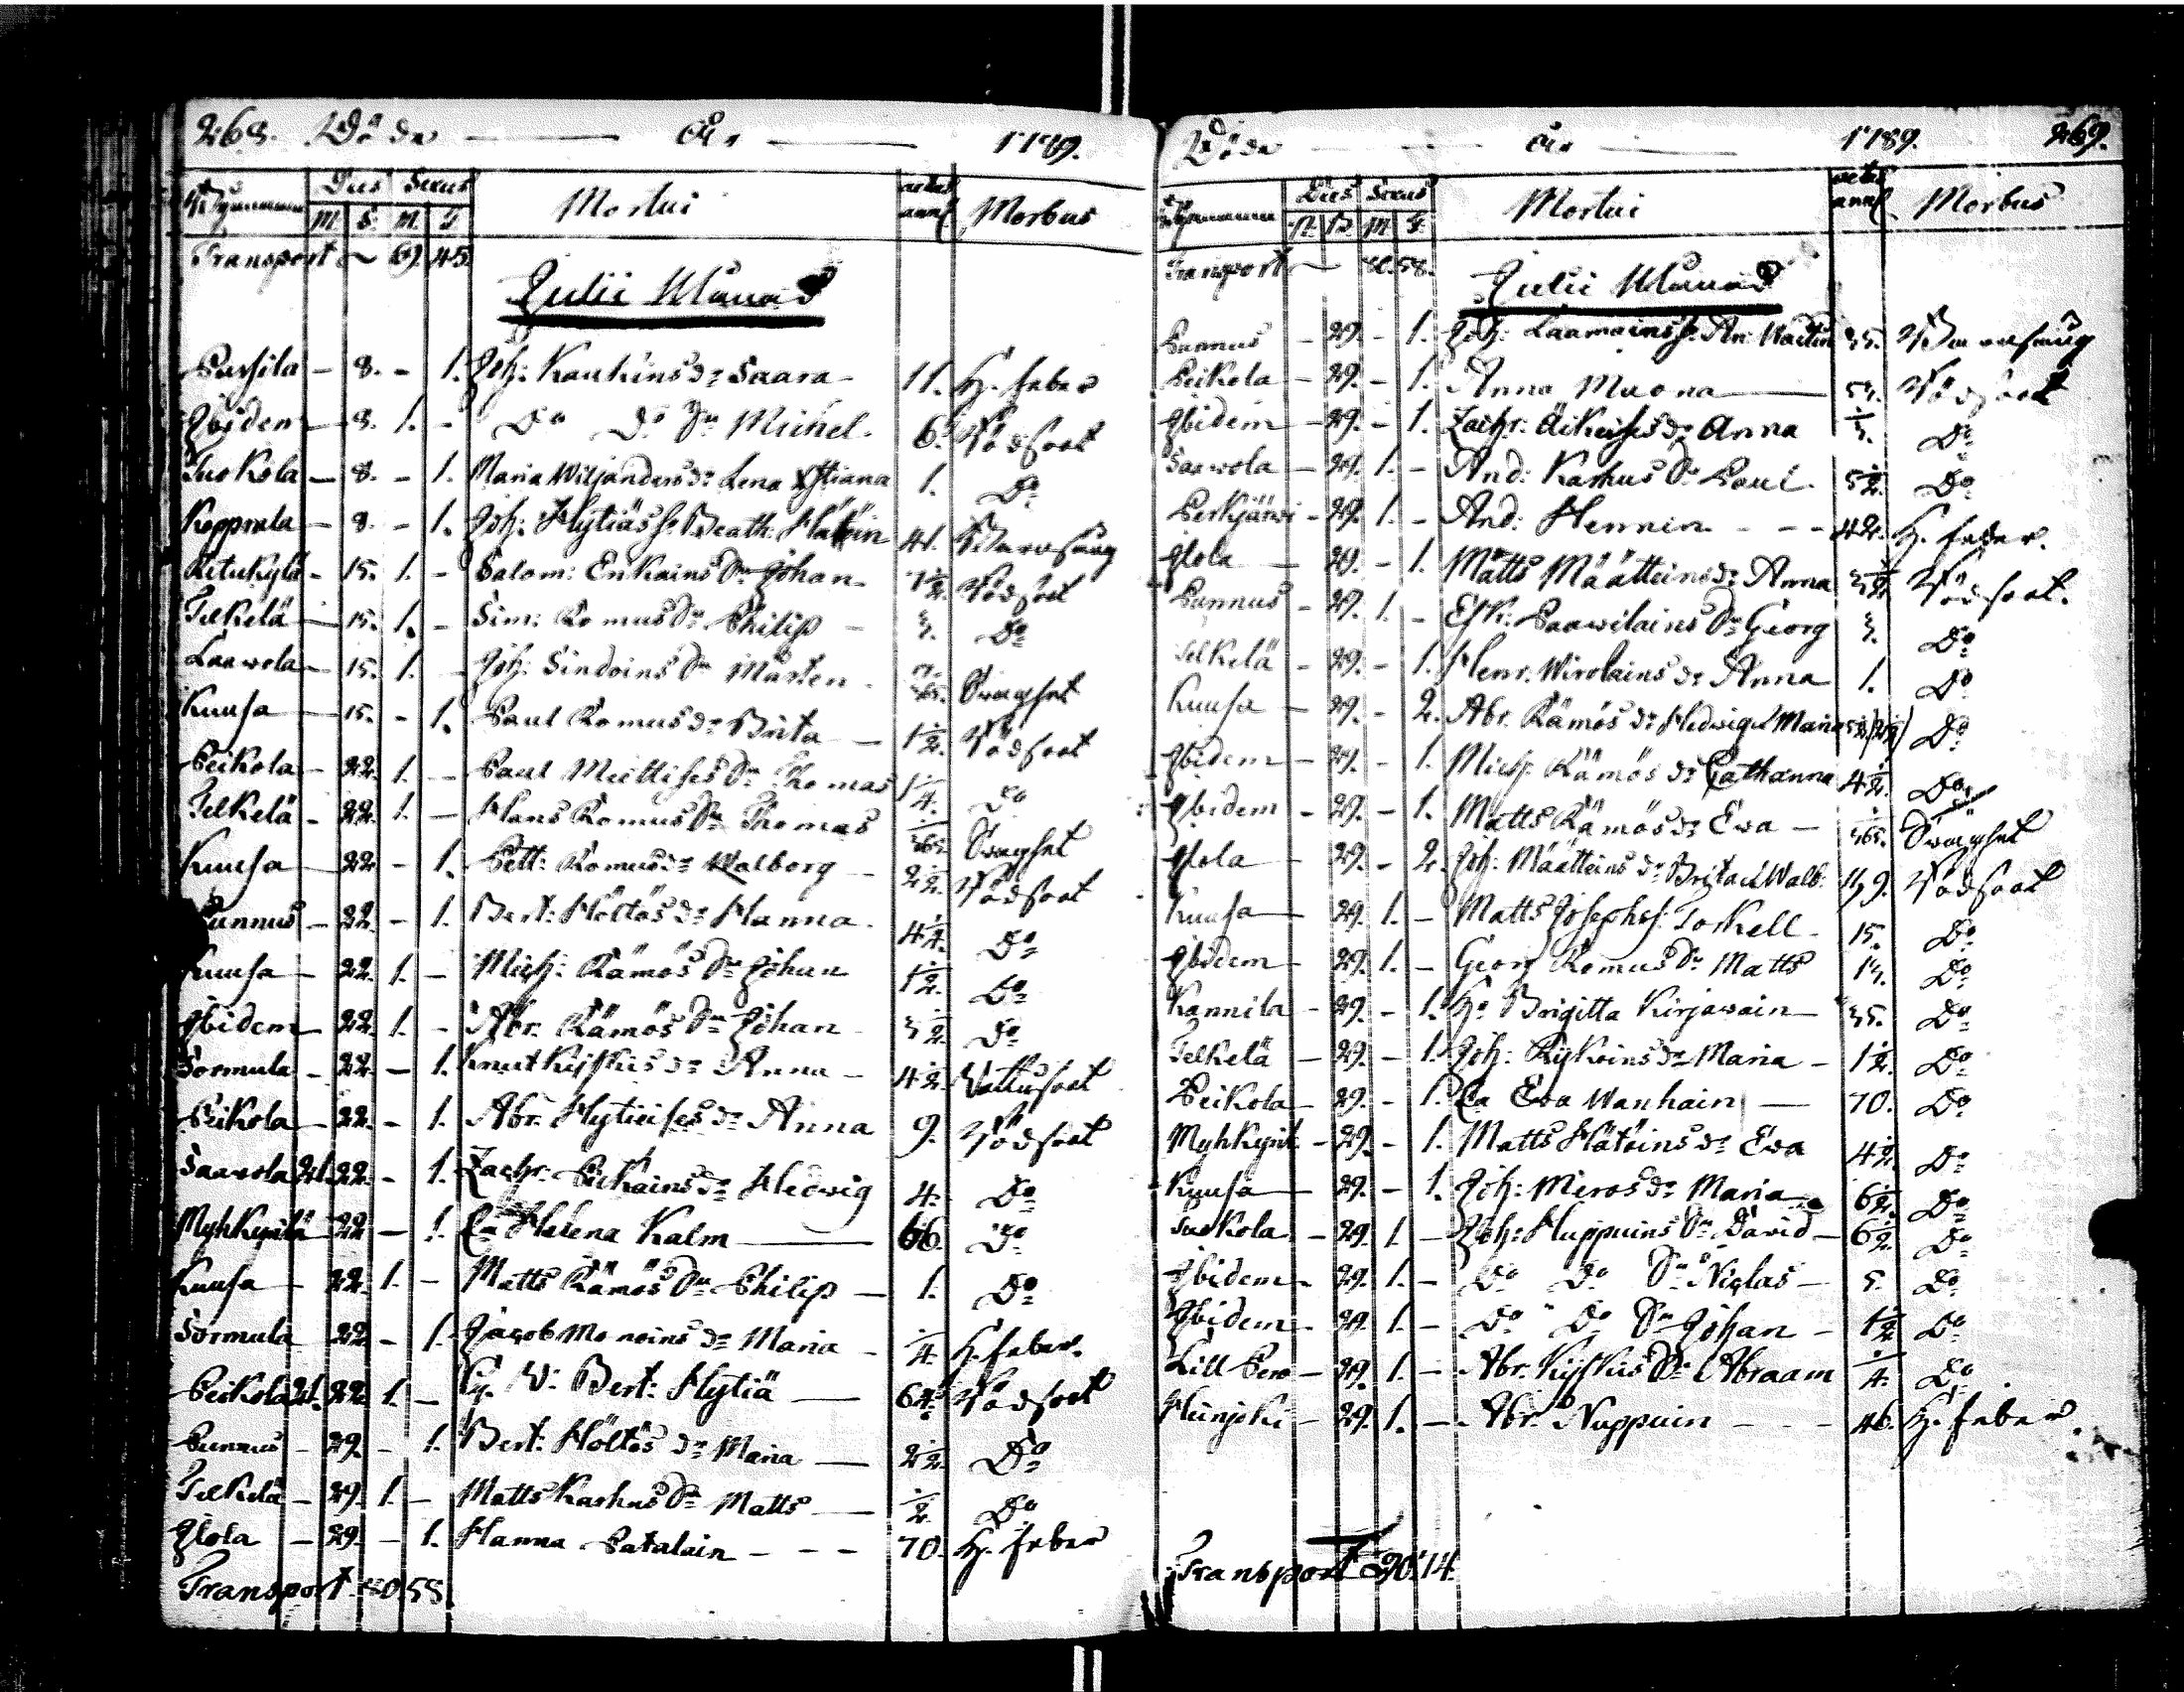 268. Döde — År — 1789.
Dies Sexus Mortui aetas annus Morbus
M. S. M. F.
Transport 69. 45.
Julii Månad
Pursila — 8. – 1. Joh: Kaukins dr Saara 11. H. feber
Ibidem — 8. 1. – Do Do Sn Michel. 6. Rödsoot
Tuokola — 8. – 1. Maria Wiljanders dr Lena Xstiana 1. Do
Kopprala — 8. – 1. Joh: Hytiäs h. Beath: Hätöin 41.
Ritukylä – 15. 1. – Salom: Enkains Sn Johan 1 1/2. Rödsoot
Telkelä — 15. 1. – Sim: Romus Sn Philip — 3. Do
Laawola — 15. 1. – Joh: Sindoins Sn Mårten Swaghet
Kuusa — 15. – 1. Paul Romus dr Brita — 1 1/2. Rödsoot
Peikola — 22. 1. – Paul Sn Thomas 1/4. Do
Telkelä – 22. 1. — Hans Romus Sn Thomas Swaghet
Kuusa — 22 – 1. Pett: Romus dr Walborg — 2 1/2. Rödsoot
Punnus – 22. – 1. Bert: Höltös dr Hanna. 4 1/2. Do
Kuusa — 22. 1. – Mich: Rämös Sn Johan 1 1/2. Do
Ibidem — 22. 1. – Abr. Rämös Sn Johan 3 1/2. Do
Sormula – 22. – 1. Knut Kyskis dr Anna — 4 1/2. Wattusoot
Peikola — 22. – 1. Abr. Hytieises dr Anna 9. Rödsoot
Saarola 22. – 1. Zachr. Peikains dr Hedwig 4. Do
Myhkyrilä 22 — 1. Ea Helena Kalm — 66. Do
Kuusa — 22. 1. – Matts Rämös Sn Philip — 1. Do
Sormula 22 – 1. Jacob Mo noins dr Maria — 1/4. H. feber.
Peikola 22. 1. – Bert: Hytiä — 64. Rödsoot
Punnus – 29. – 1. Bert: Höltös dr Maria — 2 1/2. Do
Telkelä – 29. 1. – Matts Karhus Sn Matts — 1/2. Do
Ilola — 29. – 1. Hanna Patalain – – – 70. H. feber
Transport. 80. 58.
Döde — År — 1789. 269.
Dies Sexus Mortui aetas annus Morbus
M. F.
Transport 80. 58.
Julii Månad
Punnus – 29. – 1. Joh: Laamains h. An: 35.
Peikola — 29. – 1. Anna Muona — Rödsoot
Ibidem — 29. – 1. Zachr: Äikeises dr Anna Do
Saarola — 29. 1. – And: Karhus Sn Paul 5 1/2. Do
Perkjärwi – 29. 1. – And: Hennin – – – 42. H. feber.
Ilola — 29. – 1. Matts Määtteins dr Anna 3 1/2. Rödsoot.
Punnus – 29. 1. – Esk: Paawilains Sn Georg 3. Do
Telkelä – 29. – 1. Henr. Wirolains dr Anna 1. Do
Kuusa — 29. – 2. Abr. Rämös dr Hedwig et Maria Do
Ibidem — 29. – 1. Mich: Rämös dr Cathanna 4 1/2. Do
Ibidem – 29. – 1. Matts Rämös dr Ewa — Swaghet
Ilola — 29. – 2. Joh: Määtteins dr Brita et Walb: 11, 9. Rödsoot
Kuusa — 29. 1. – Matts Josephs: Torkell 15. Do
Ibidem — 29. 1. – Georg Romus Sn Matts 13. Do
Kannila – 29. – 1. Ho Brigitta Kirjawain — 35. Do
Telkelä — 29. – 1. Joh: Rykoins dr Maria – 1 1/2. Do
Peikola — 29. – 1. Ea Ewa Wanhain — 70. Do
Myhkyrit. – 29. – 1. Matts Hätöins dr Ewa 4 1/2. Do
Kuusa — 29. – 1. Joh: Meros dr Maria 6 1/2. Do
Tuokola – 29. 1. – Joh: Huppuins Sn David — 6 1/2. Do
Ibidem – 29. 1. – Do Do Sn Niclas — 5. Do
Ibidem – 29. 1. – Do Do Sn Johan – 1 1/2. Do
Lill Pero – 29. 1. – Abr. Kyskis Sn Abraam 1/4. Do
Heinjoki – 29. 1. – Abr. Nuppuin – – – 46. H. feber
Transport 90. 74.